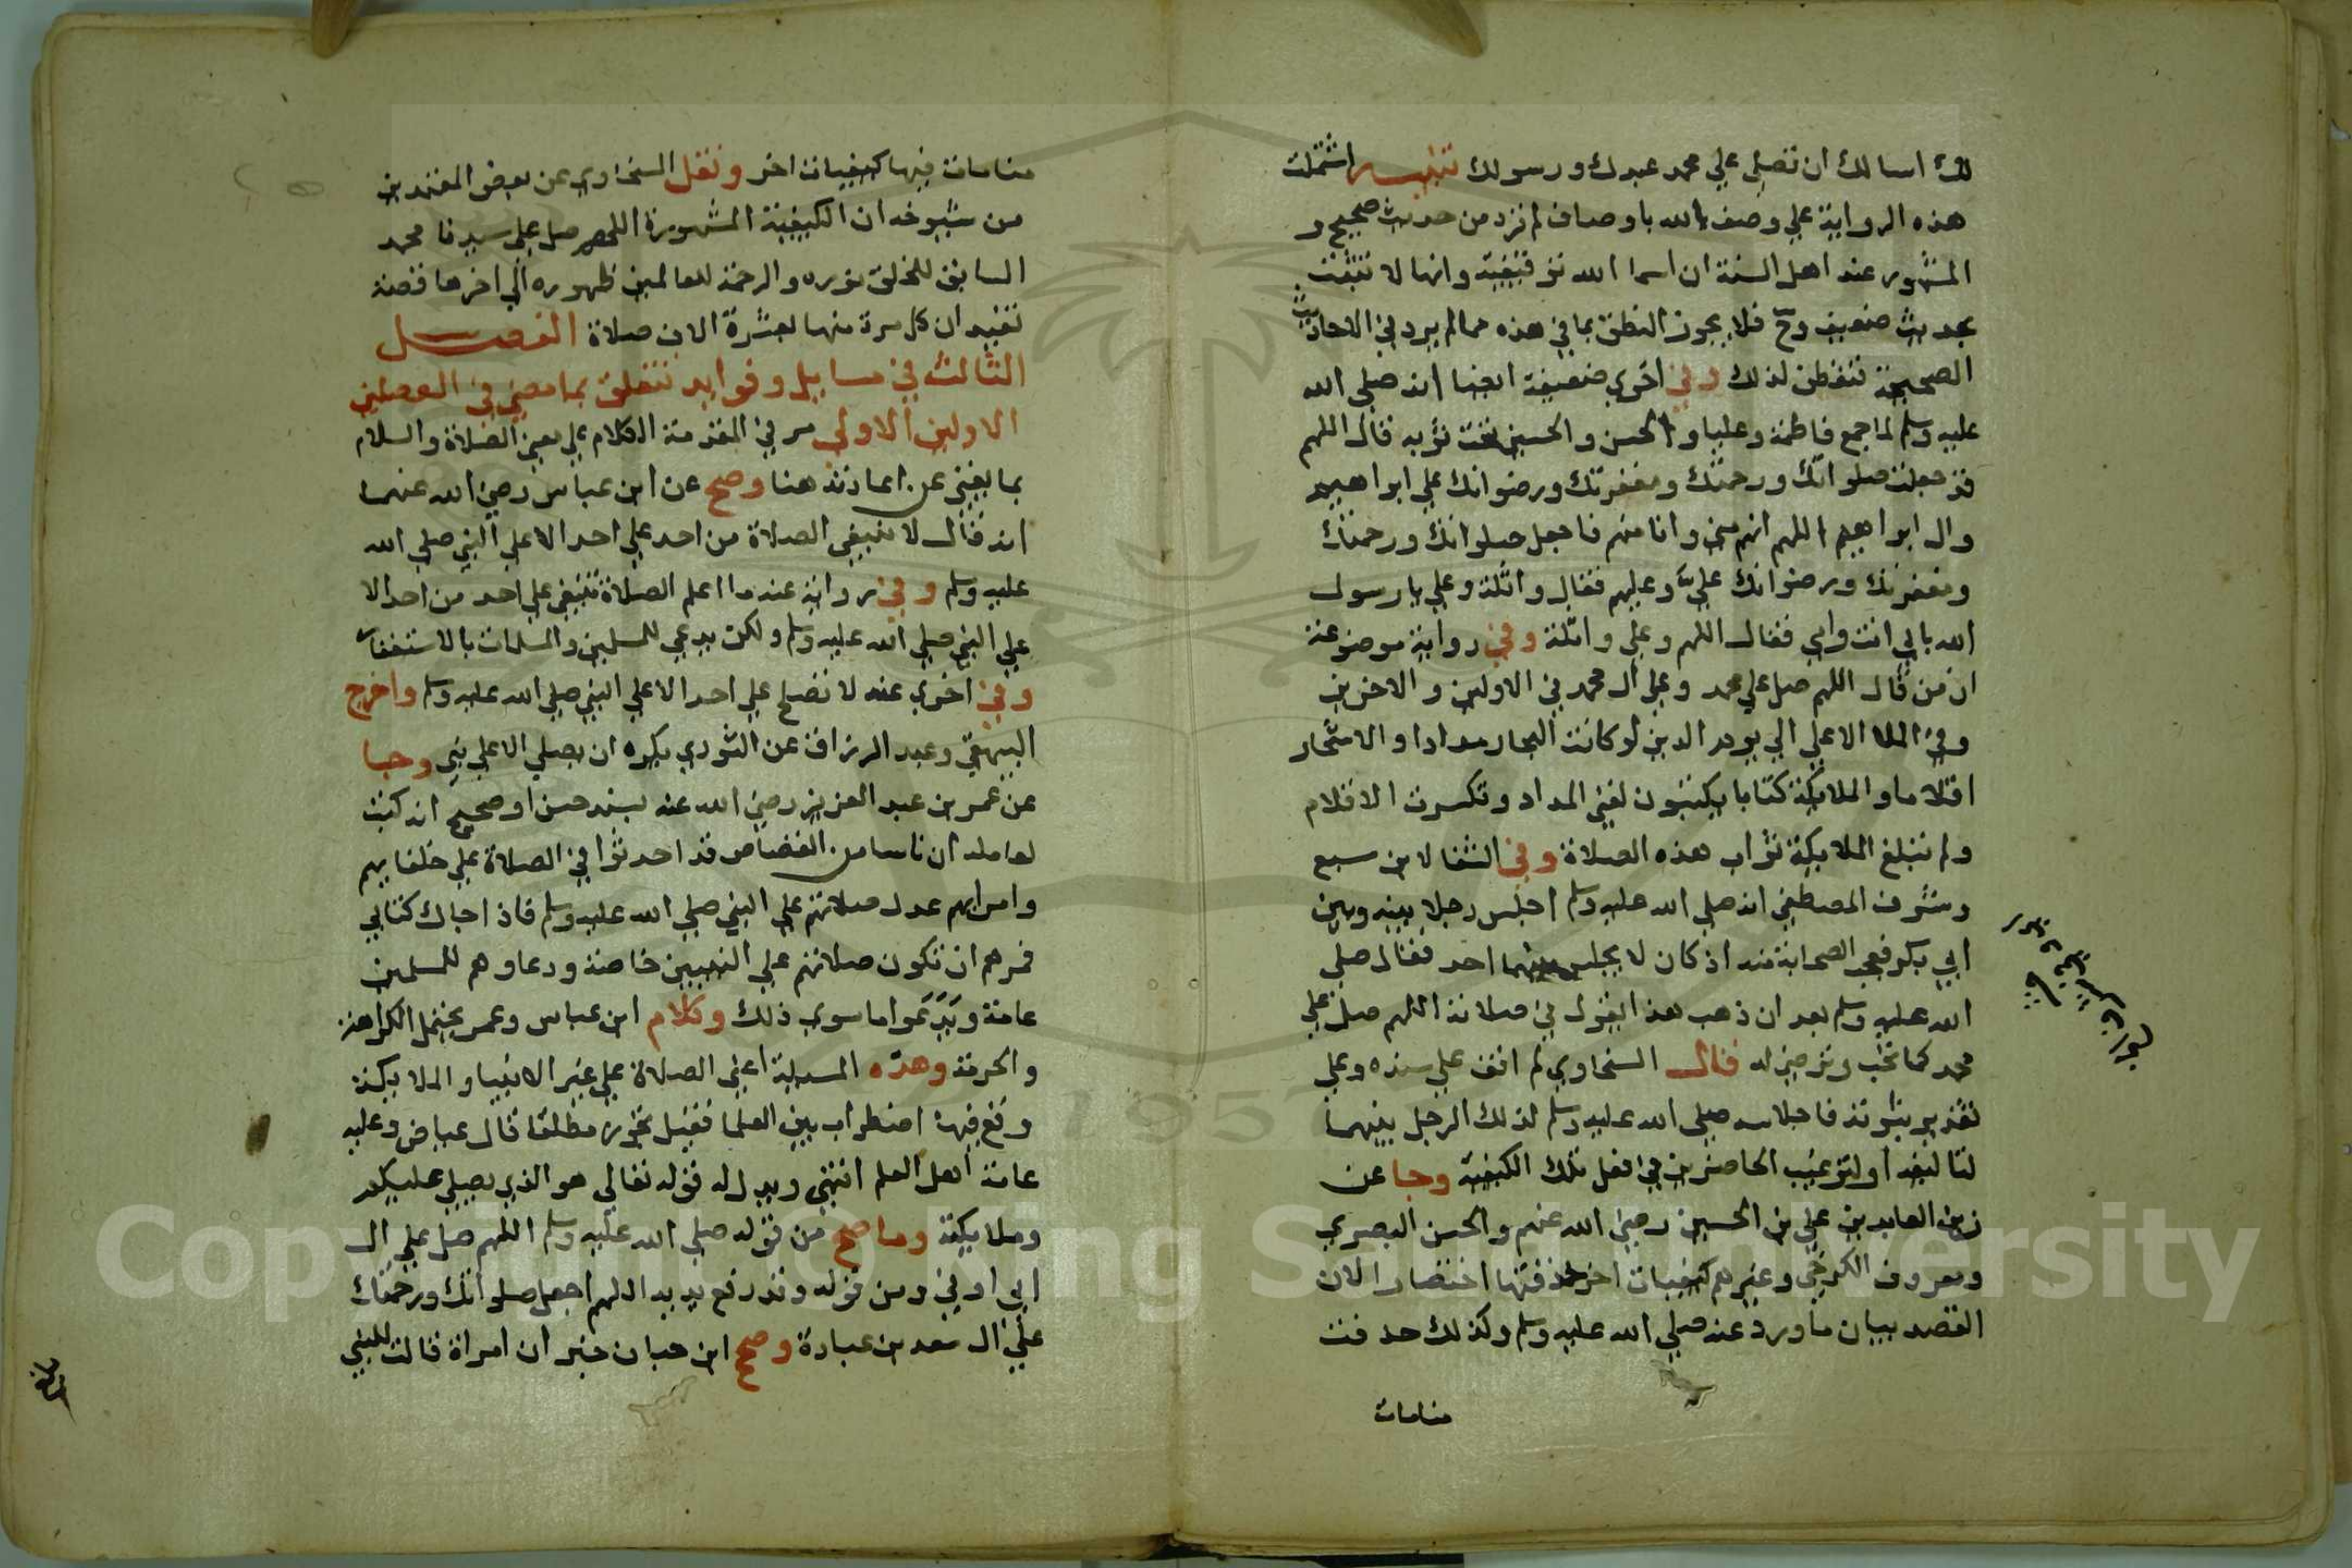 لك اسالك ان تصلي علي محمد عبدك ورسولك تنبيه اشتملت
هذه الرواية علي وصف الله باوصاف لم ترد من حديث صحيح و
المشهور عند اهل السنة ان اسما الله توقيفية وانها لا تثبت
بحديث ضعيف وح فلا يجوز النطق بما في هذه مما لم يرد في الاحاديث
الصحيحة فتفطن لذلك وفي اخري ضعيفة ايضا انه صلي الله
عليه وسلم لما جمع فاطمة وعليا والحسن والحسين تحت ثوبه قال اللهم
قد جعلت صلواتك ورحمتك ومغفرتك ورضوانك علي ابراهيم
وال ابراهيم اللهم انهم مني وانا منهم فاجعل صلواتك ورحمتك
ومغفرتك ورضوانك عليّ وعليهم فقال واثلة وعلي يا رسول
الله بابي انت وامي فقال اللهم وعلي واثلة وفي رواية موضوعة
ان من قال اللهم صل علي محمد وعلي ال محمد في الاولين والاخرين
وفي الملا الاعلي الي يوم الدين لو كانت البحار مدادا والاشجار
اقلاما والملايكة كتابا يكتبون لفني المداد وتكسرت الاقلام
ولم تبلغ الملايكة ثواب هذه الصلاة وفي الشفا لابن سبع
وشرف المصطفي انه صلي الله عليه وسلم اجلس رجلا بينه وبين
ابي بكر فعجب الصحابة منه اذ كان لا يجلس بينهما احد فقال صلي
الله عليه وسلم بعد ان ذهب هذا يقول في صلاته اللهم صل علي
محمد كما تحب وترضي له قال السخاوي لم اقف علي سنده وعلي
تقدير ثبوته فاجلاسه صلي الله عليه وسلم لذلك الرجل بينهما
لتاليفه او لترغيب الحاضرين في فعل تلك الكيفية وجا عن
زين العابدين علي بن الحسين رضي الله عنهم والحسن البصري
ومعروف الكرخي وغيرهم كيفيات اخر حذفتها اختصارا لان
القصد بيان ما ورد عنه صلي الله عليه وسلم وكذلك حذفت
منامات
منامات فيها كيفيات اخر ونقل السخاوي عن بعض المعتمدين
من شيوخه ان الكيفية المشهورة اللهم صل علي سيدنا محمد
السابق للخلق نوره والرحمة للعالمين ظهوره الي اخرها قصة
تفيد ان كل مرة منها بعشرة الاف صلاة الفصل
الثالث في مسايل وفوايد تتعلق بما مضي في الفصلين
الاولين الاولي مر في المقدمة الكلام علي معني الصلاة والسلام
بما يغني عن اعادته هنا وصح عن ابن عباس رضي الله عنهما
انه قال لا تنبغي الصلاة من احد علي احد الا علي النبي صلي الله
عليه وسلم وفي رواية عنه ما اعلم الصلاة تنبغي علي احد من احد الا
علي النبي صلي الله عليه وسلم ولكن يدعي للمسلمين والمسلمات بالاستغفار
وفي اخري عنه لا تصلح علي احد الا علي النبي صلي الله عليه وسلم واخرج
البيهقي وعبد الرزاق عن الثوري يكره ان يصلي الا علي نبي وجا
عن عمر بن عبد العزيز رضي الله عنه بسند حسن او صحيح انه كتب
لعامله ان ناسا من القصاص قد احدثوا في الصلاة علي خلفايهم
وامرايهم عدل صلاتهم علي النبي صلي الله عليه وسلم فاذا جاك كتابي
فمرهم ان تكون صلاتهم علي النبيين خاصة ودعاوهم للمسلمين
عامة ويدعوا ما سوي ذلك وكلام ابن عباس وعمر يحتمل الكراهة
والحرمة وهذه المسيلة اعني الصلاة علي غير الانبيا والملايكة
وقع فيها اضطراب بين العلما فقيل تجوز مطلقا قال عياض وعليه
عامة اهل العلم انتهي ويدل له قوله تعالي هو الذي يصلي عليكم
وملايكته وما صح من قوله صلي الله عليه وسلم اللهم صل علي ال
ابي اوفي ومن قوله وقد رفع يديه اللهم اجعل صلواتك ورحمتك
علي ال سعد بن عبادة وصح ابن حبان خبر ان امراة قالت للنبي
Copyright © King Saud University
1957